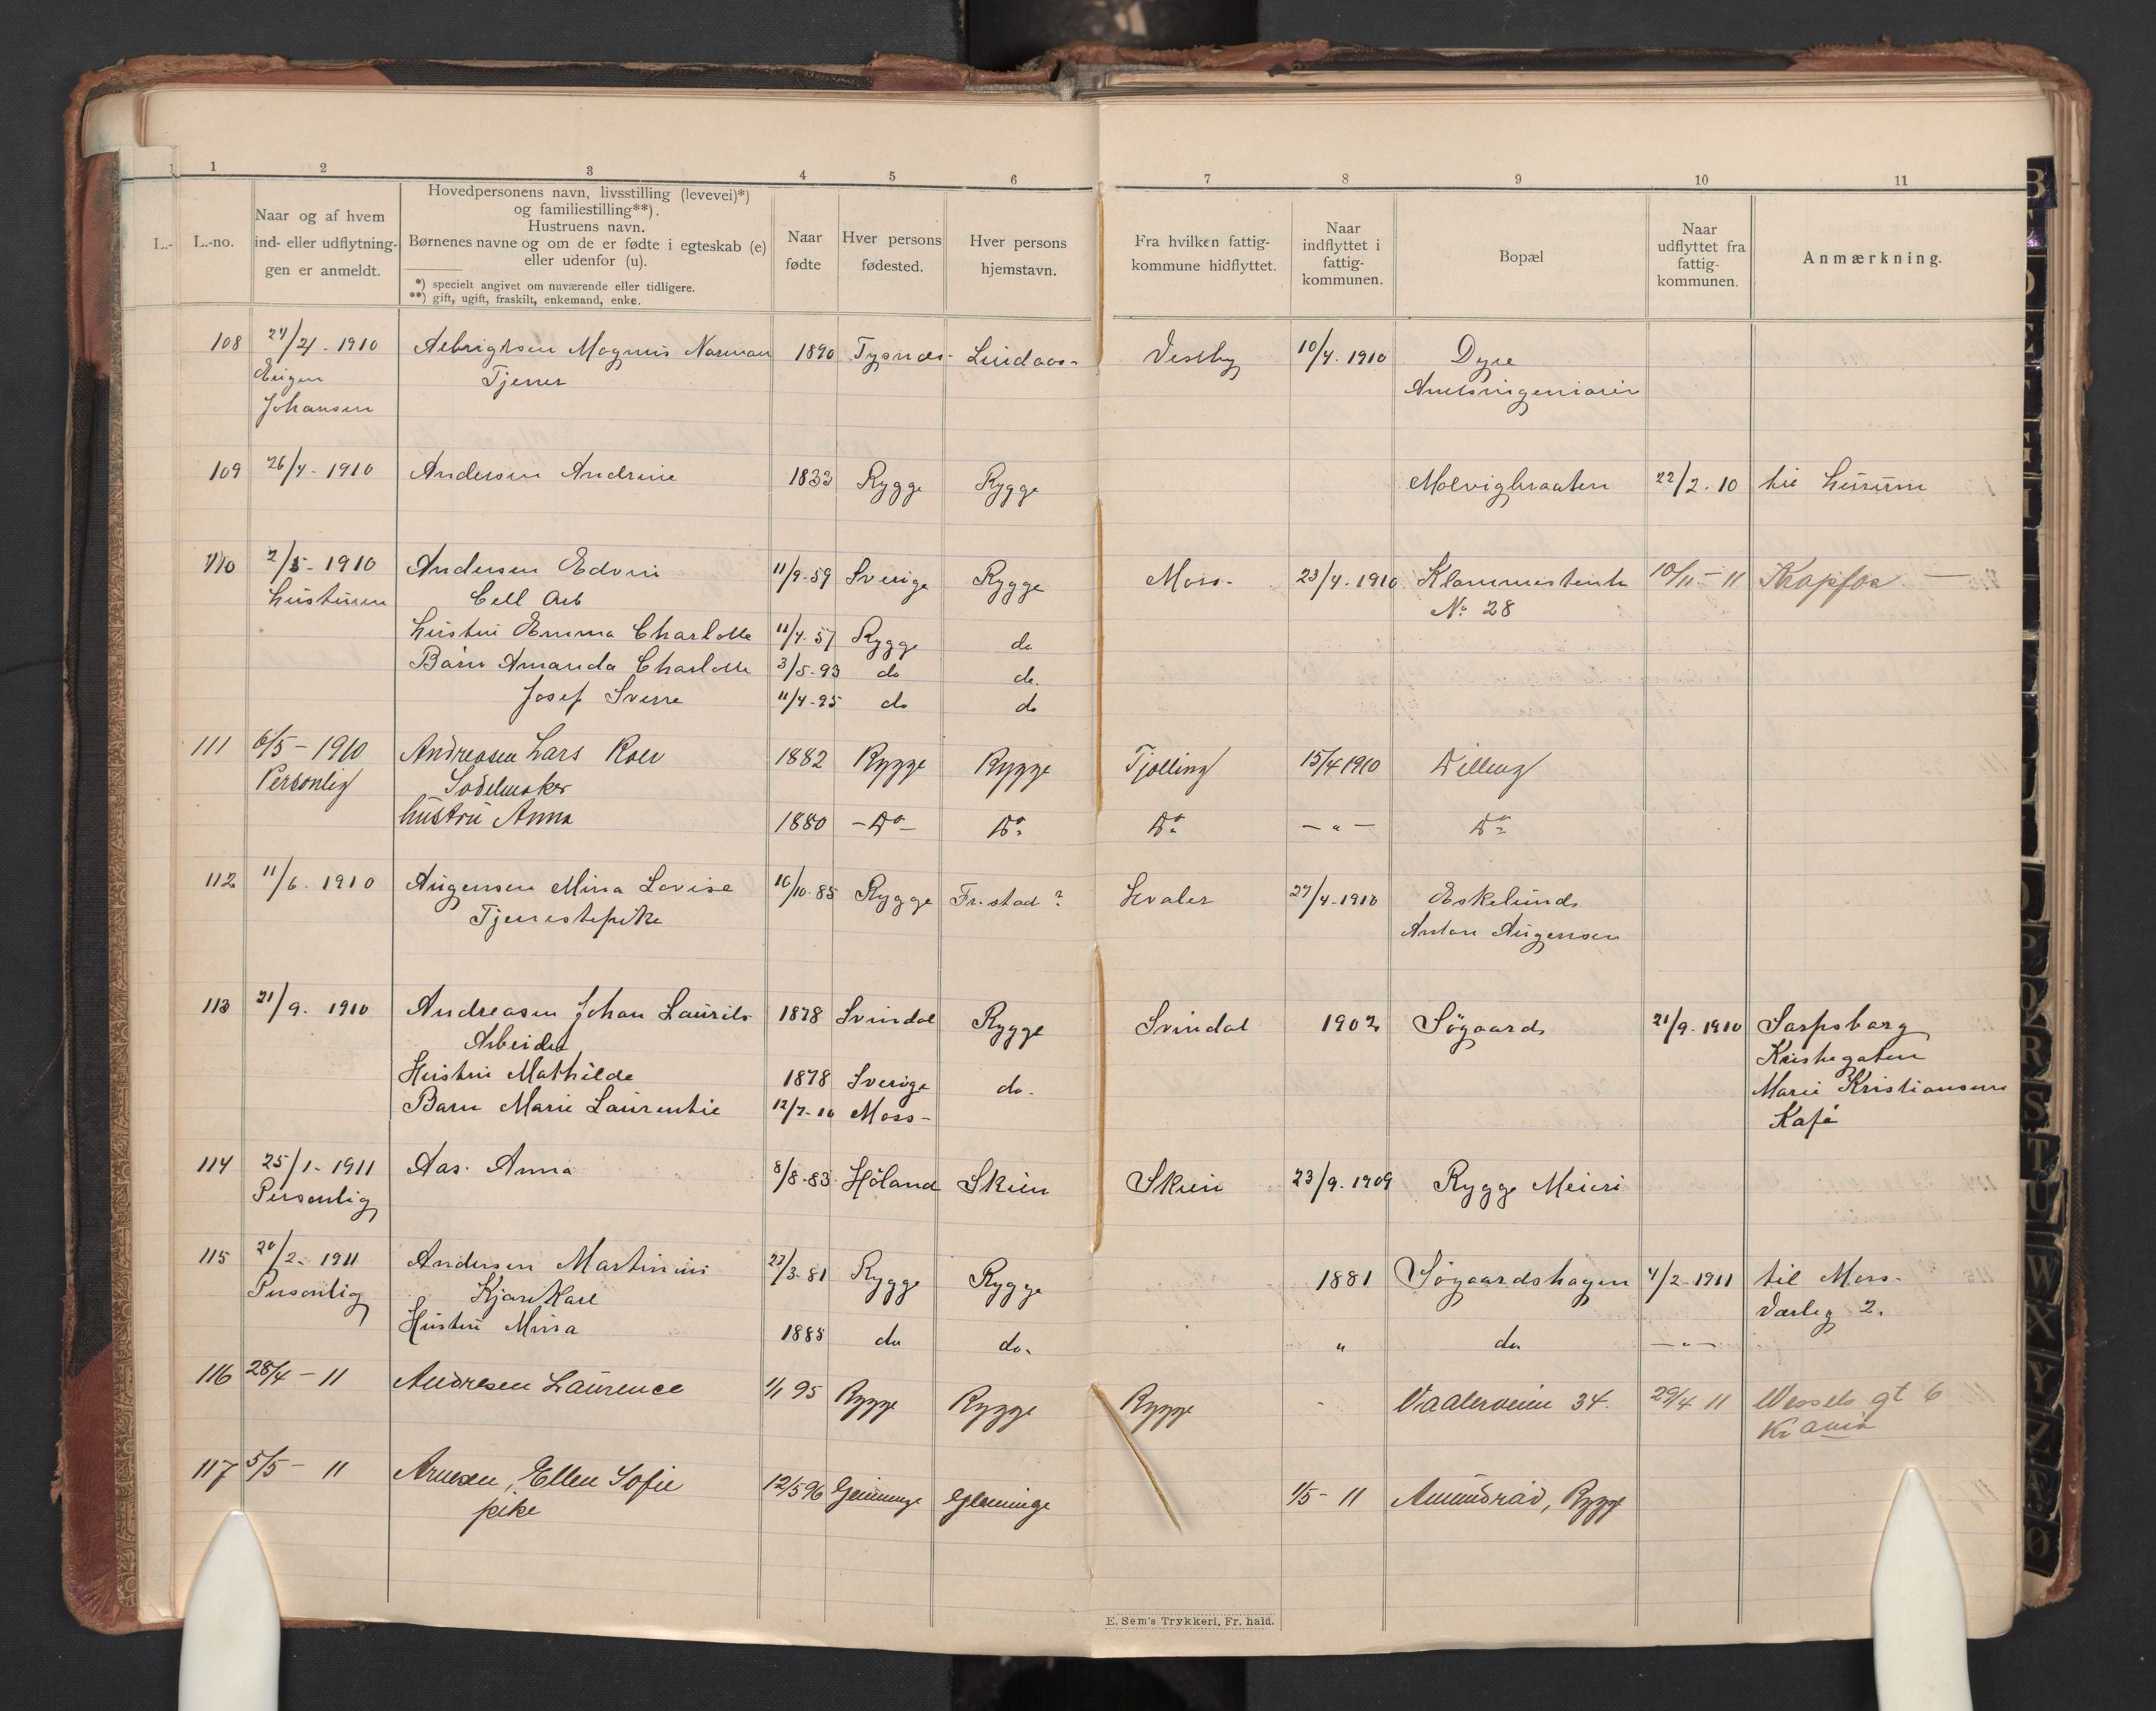 1 2 3 4 5 6 7 8 9 10 11
L.- L.-no.
Naar og af hvem
ind- eller udflytning-
gen er anmeldt.
Hovedpersonens navn, livsstilling (levevei)*)
og familiestilling**).
Hustruens navn.
Børnenes navne og om de er fødte i egteskab (e)
eller udenfor (u).
*) specielt angivet om nuværende eller tidligere.
**) gift, ugift, fraskilt, enkemand, enke.
Naar
fødte
Hver persons
fødested.
Hver persons
hjemstavn.
Fra hvilken fattig-
kommune hidflyttet.
Naar
indflyttet i
fattig-
kommunen.
Bopæl
Naar
udflyttet fra
fattig-
kommunen.
Anmærkning.
108 27/4. 1910 Albrigtsen Magnus Norman 1890 Tysnes Lindaas Vestby 10/4. 1910 Dyre
Eugen Tjener Amtsingeniør
Johansen
109 26/4 - 1910 Andersen Andrine 1833 Rygge Rygge 22/2. 10 til Hurum
110 2/5 - 1910 Andersen Edvin 11/9-59 Sverige Rygge Moss 23/4. 1910 10/11 - 11
Hustruen Cell Arb No 28
Hustru Emma Charlotte 11/4. 57 Rygge do
Barn Amanda Charlotte 3/5-93 do do.
Josef Sverre 11/4-95 do do
111 6/5 - 1910 Andreasen Lars 1882 Rygge Rygge Tjølling 15/4 1910 Dilling
Personlig Sadelmaker
hustru Anna 1880 - Do - Do Do - " - Do
112 11/6. 1910 Augensen Mina Lovise 10/10-85 Rygge Fr.stad? Hvaler 27/4-1910 Eskelund
Tjenestepike Anton Augensen
113 21/9. 1910 Andreasen Johan Laurits 1878 Svindal Rygge Svindal 1902 Søgaard 21/9. 1910 Sarpsborg
Arbeider
Hustru Mathilde 1878 Sverige do. Marie Kristiansens
Barn Marie Laurentie 12/7-10 Moss - Kafé
114 25/1- 1911 Aas. Anna 8/8-83 Höland Skien Skien 23/9. 1909 Rygge Meieri
Personlig
115 20/2- 1911 Andersen Martinius 23/3-81 Rygge Rygge 1881 Søgaardshagen 4/2-1911 til Moss.
Personlig Kjørekarl Varleg 2.
Hustru Mina 1885 do do. " do - " -
116 28/4 - 11 Andresen Laurence 1/1 95 Rygge Rygge Rygge Vaalerveien 34. 29/4 11 Wessels gt 6
Kr ania
117 5/5 - 11 Arnesen, Ellen Sofie 12/5 96 Glemminge Glemminge 1/5 - 11 Amundrød, Rygge
pike
E. Sem's Trykkeri, Fr. hald.